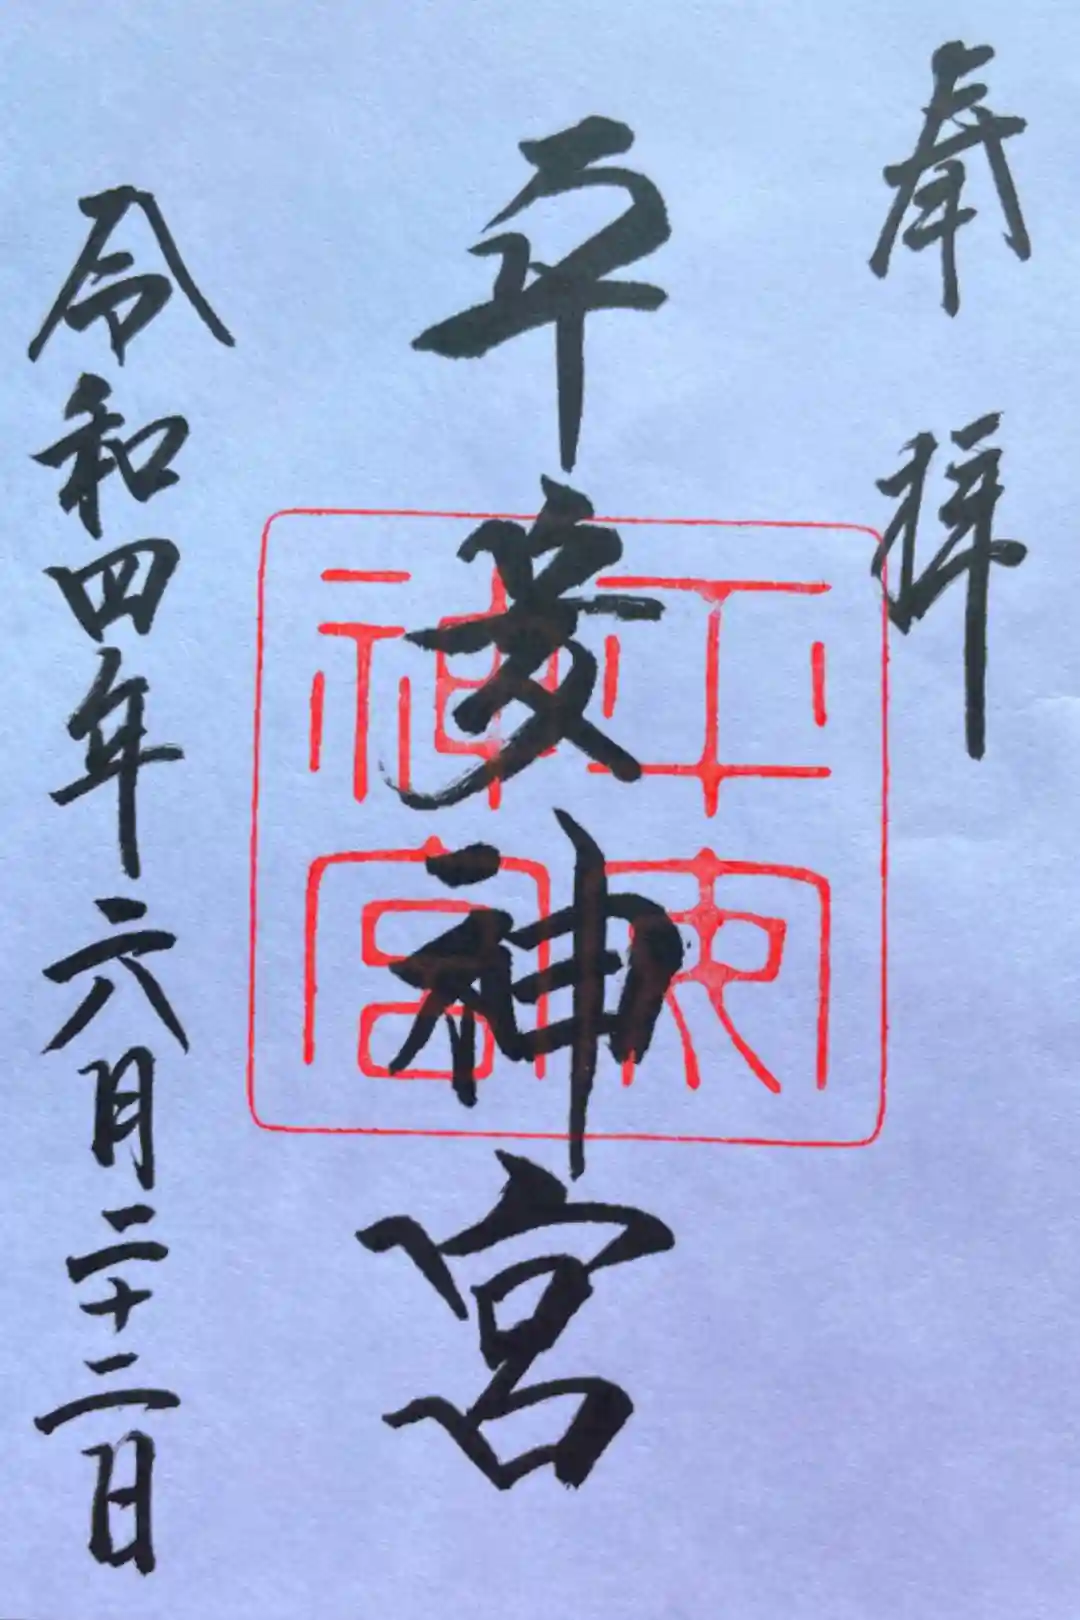 奉拝
平安神宮
令和四年六月二十二日
平安
神宮